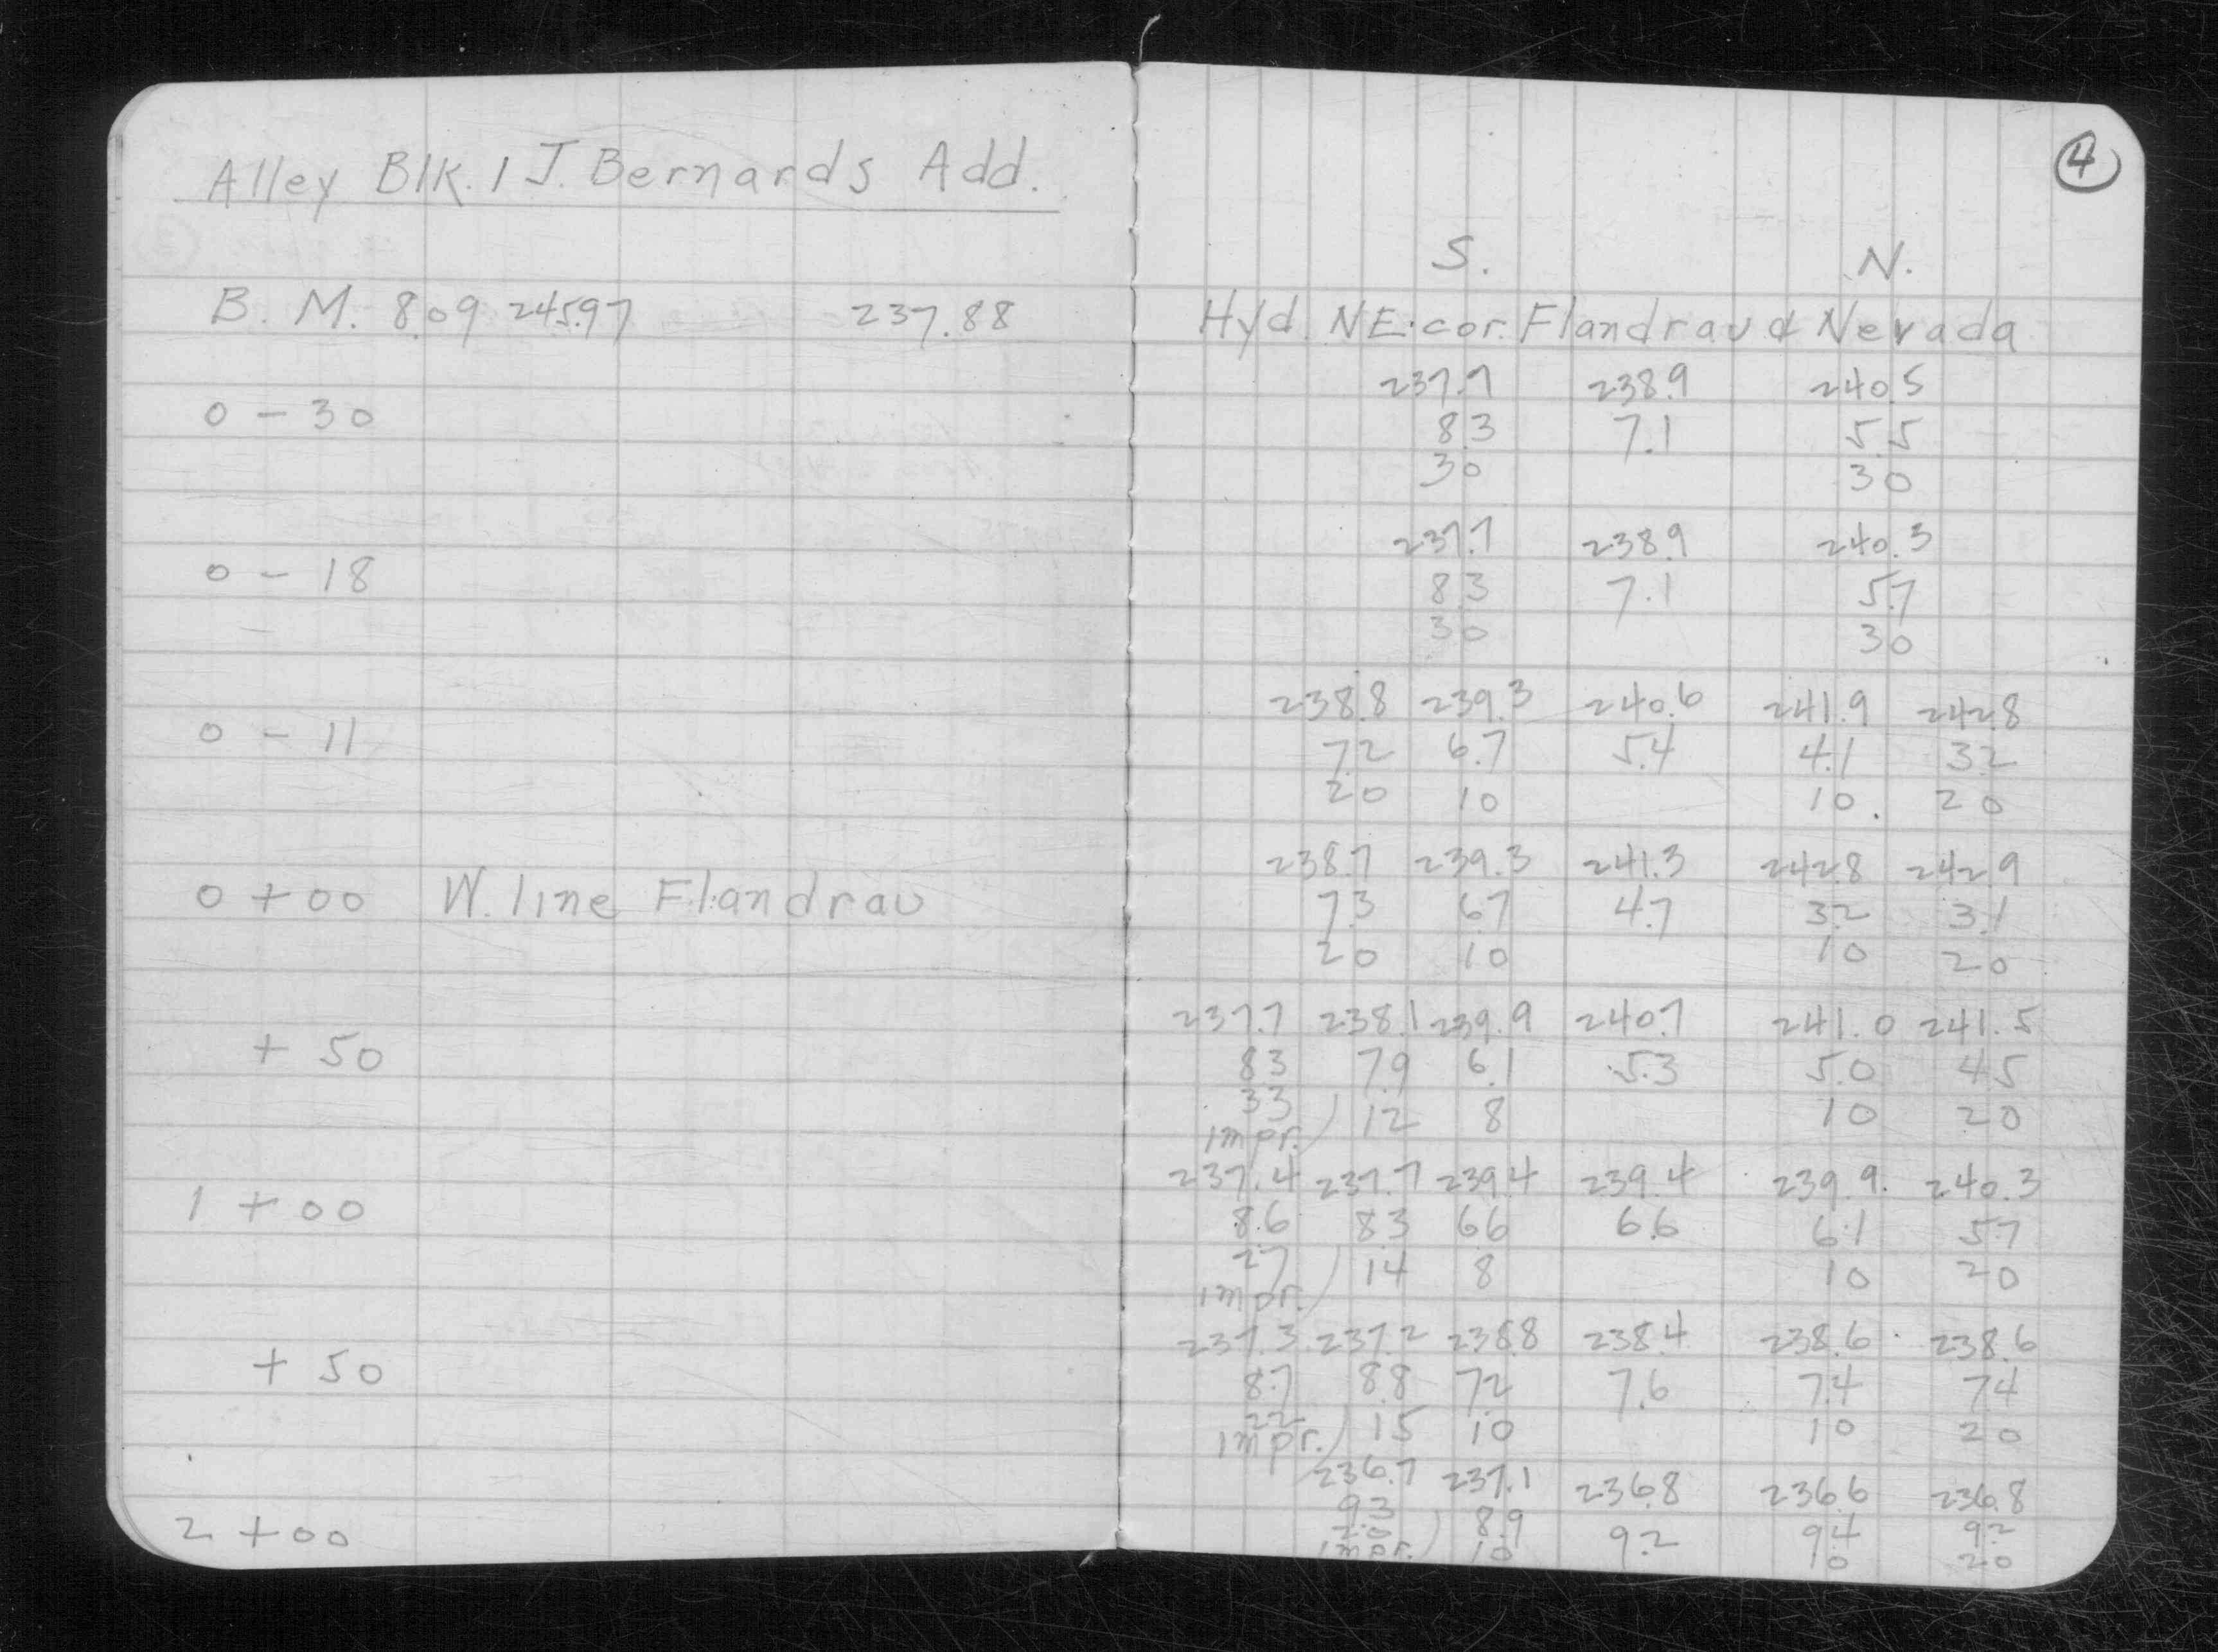 Alley Blk. 1 J. Bernards Add.
4
S. N.
B. M. 8.09 245.97 237.88 Hyd. NE. cor. Flandrau & Nevada
237.7 238.9 240.5
0 - 30 8.3 7.1 5.5
30 30
237.7 238.9 240.3
0 - 18 8.3 7.1 5.7
30 30
238.8 239.3 240.6 241.9 242.8
0 - 11 7.2 6.7 5.4 4.1 3.2
20 10 10 20
238.7 239.3 241.3 242.8 242.9
0 + 00 W. line Flandrau 7.3 6.7 4.7 3.2 3.1
20 10 10 20
237.7 238.1 239.9 240.7 241.0 241.5
+ 50 8.3 7.9 6.1 5.3 5.0 4.5
33 12 8 10 20
impr.
237.4 237.7 239.4 239.4 239.9 240.3
1 + 00 8.6 8.3 6.6 6.6 6.1 5.7
27 14 8 10 20
impr.
237.3 237.2 238.8 238.4 238.6 238.6
+ 50 8.7 8.8 7.2 7.6 7.4 7.4
22 15 10 10 20
impr.
236.7 237.1 236.8 236.6 236.8
2 + 00 9.3 8.9 9.2 9.4 9.2
20 10 10 20
impr.